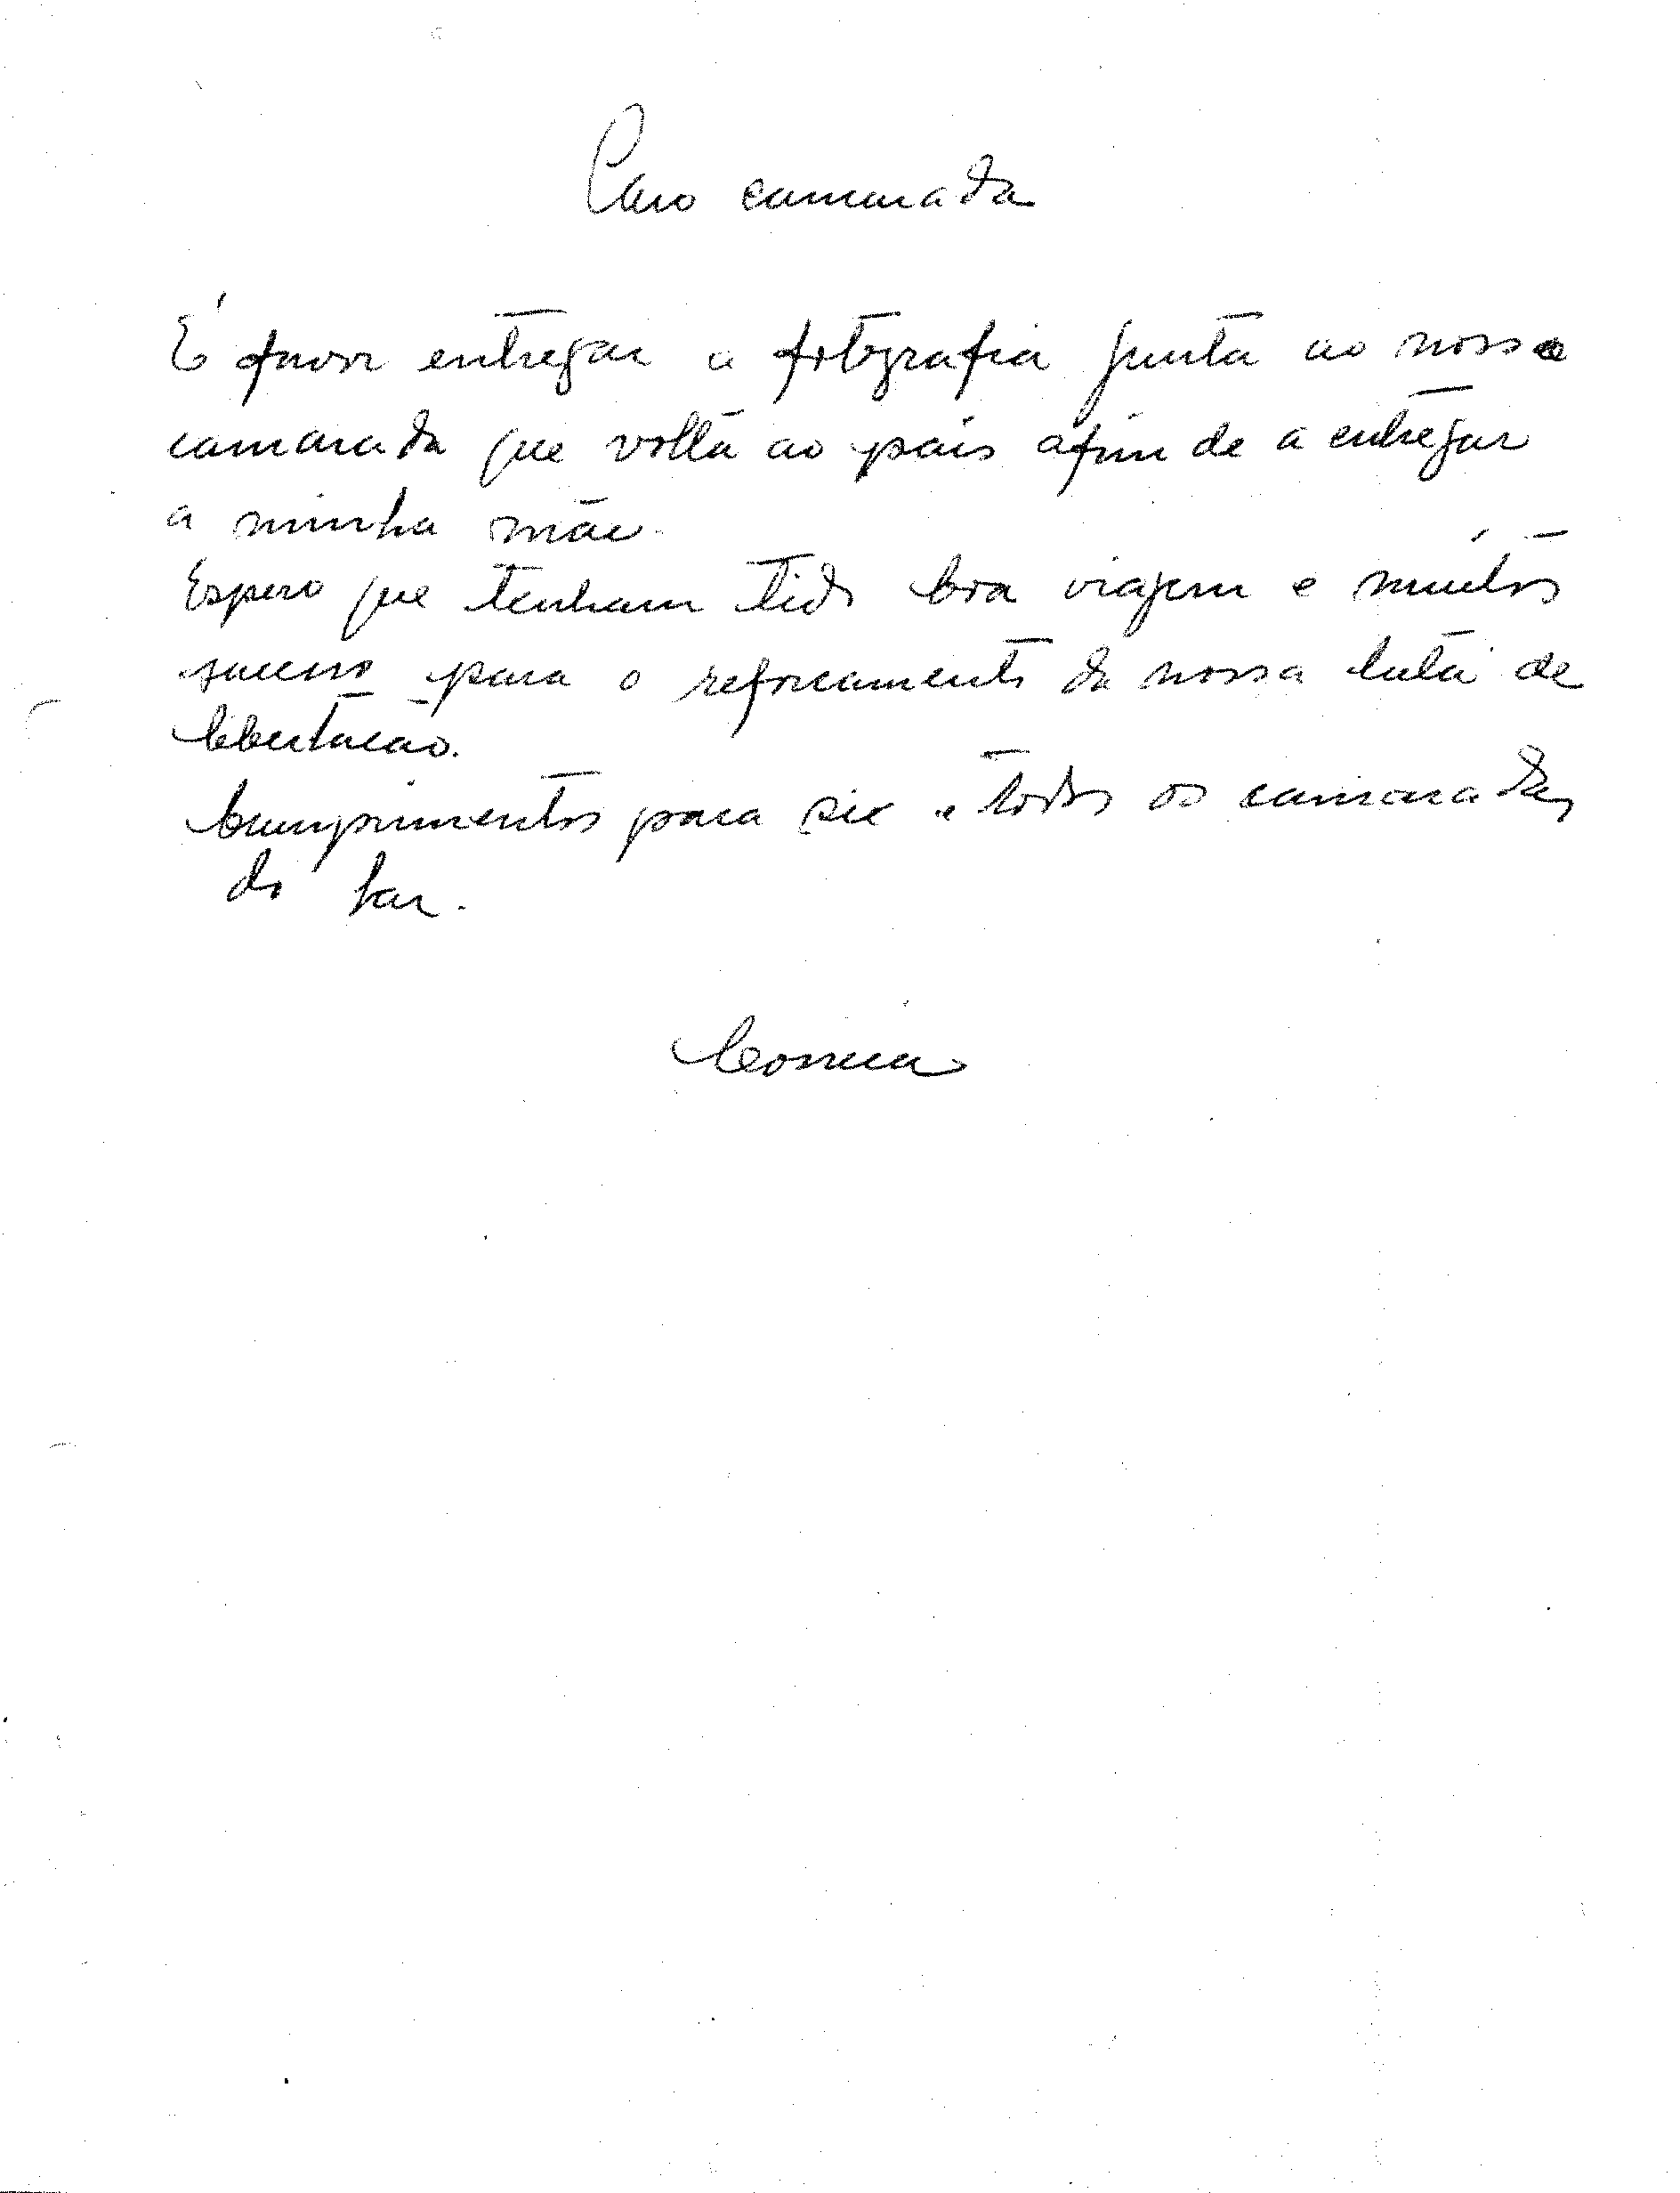 Caro camarada
É favor entregar a fotografia junta ao nosso
camarada que volta ao país afim de a entregar
a minha mãe.
Espero que tenham tido boa viagem e muitos
sucesso para o reforcamento da nossa luta de
libertacão.
Cumprimentos para si e todos os camaradas
do lar.
Correia